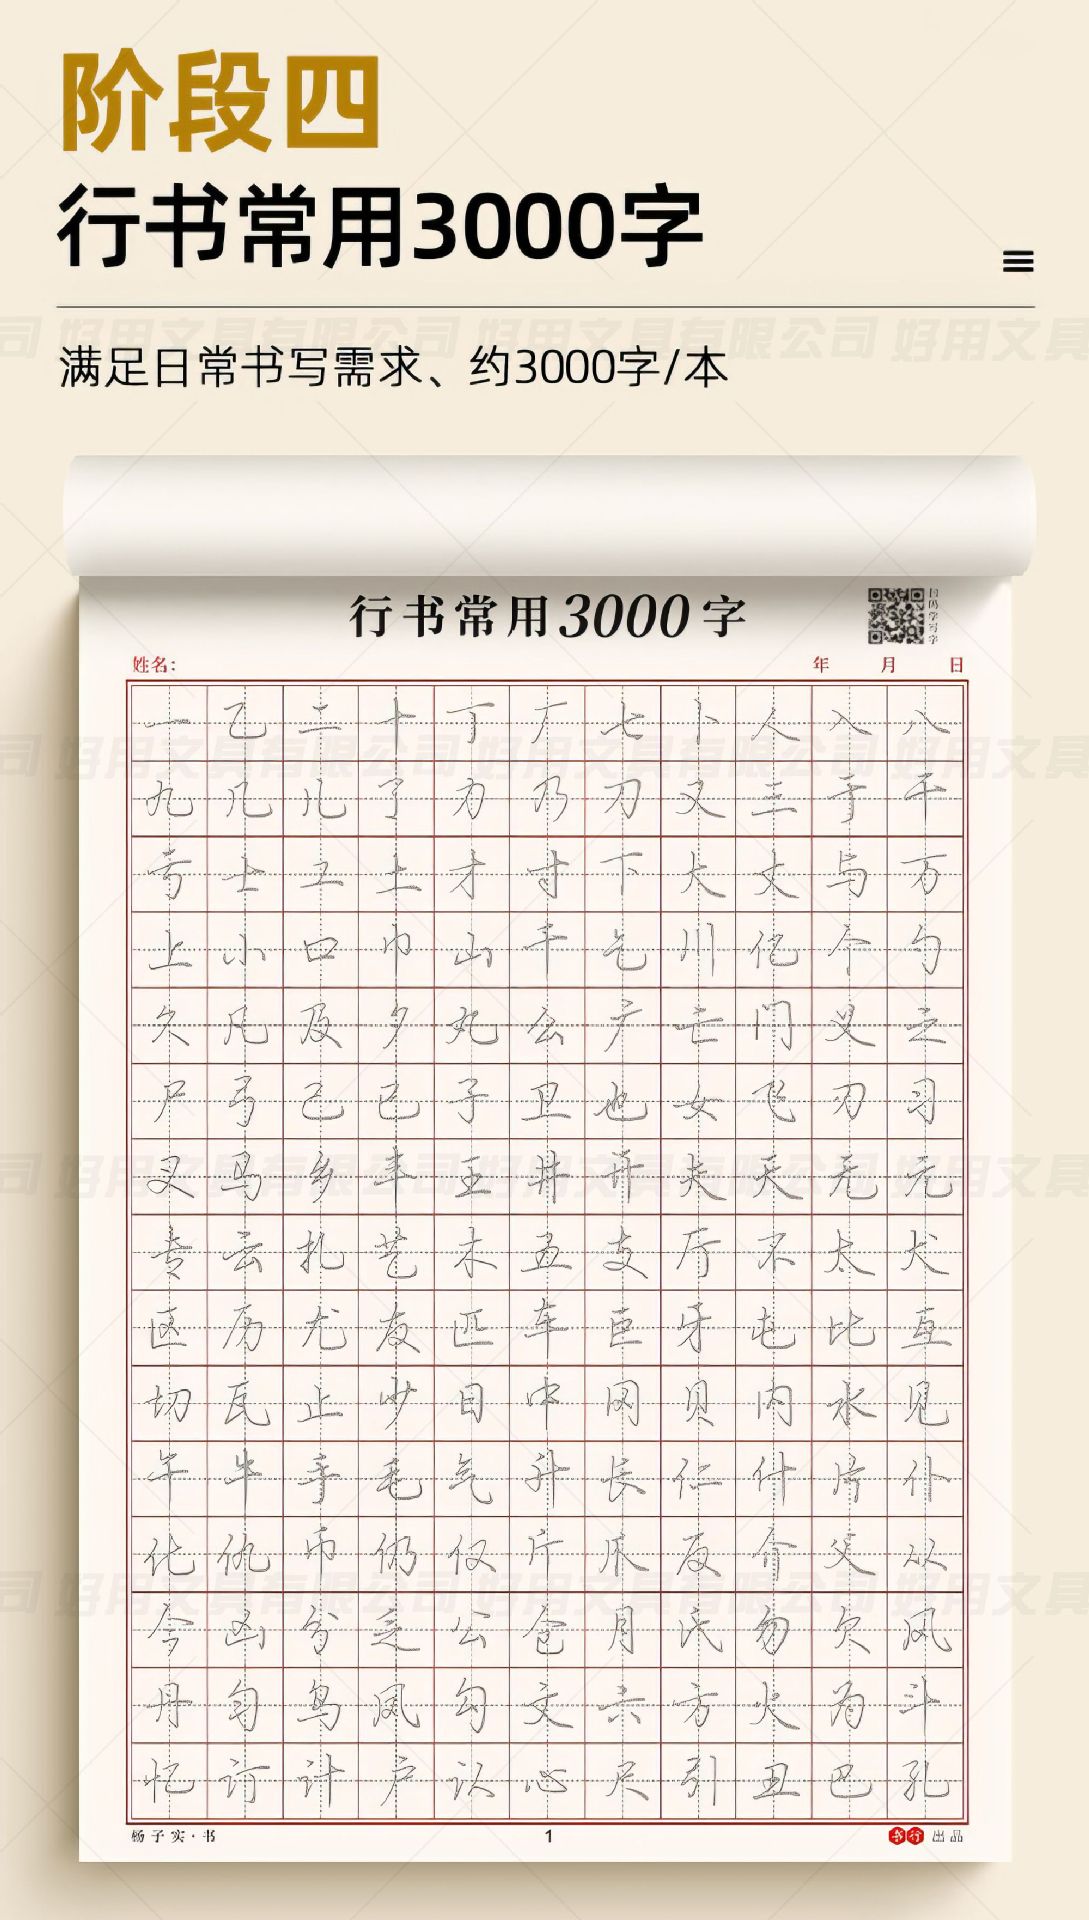 阶段四
行书常用3000字
满足日常书写需求、约3000字/本
行书常用3000字
扫码学写字
姓名： 年 月 日
一乙二十丁厂七卜人入八
九几儿了力乃刀又三于干
亏士工土才寸下大丈与万
上小口巾山千乞川亿个勺
久凡及夕丸么广亡门义之
尸弓己已子卫也女飞刃习
叉马乡丰王井开夫天无元
专云扎艺木五支厅不太犬
区历尤友匹车巨牙屯比互
切瓦止少日中冈贝内水见
午牛手毛气升长仁什片仆
化仇币仍仅斤爪反介父从
今凶分乏公仓月氏勿欠风
丹匀乌凤勾文六方火为斗
忆订计户认心尺引丑巴孔
杨子实·书 1 出品
好用文具有限公司